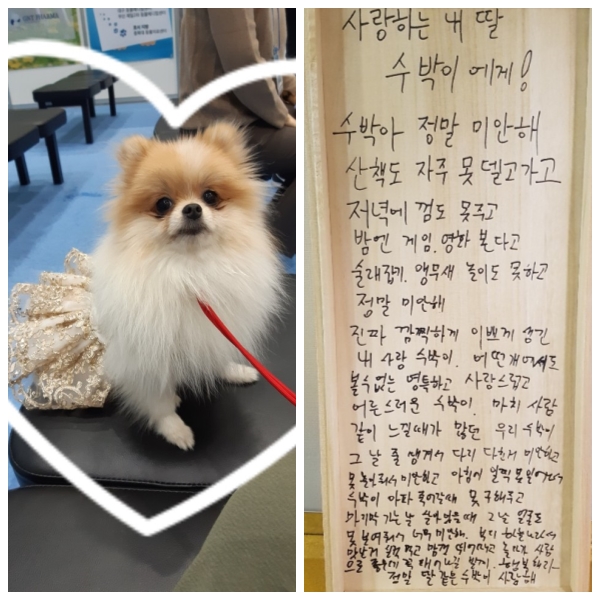 사랑하는 내 딸
수박이에게!
수박아 정말 미안해
산책도 자주 못 델고가고
저녁에 껌도 못주고
밤엔 게임, 영화 본다고
술래잡기, 앵무새 놀이도 못하고
정말 미안해
진짜 깜찍하게 이쁘게 생긴
내 사랑 수박이. 어떤개에서도
볼수없는 영특하고 사랑스럽고
어른스러운 수박이. 마치 사람
같이 느낄때가 많던 우리 수박이
그 날 줄 생겨서 다리 다쳐서 미안하고
못 놀아줘서 미안하고 아침에 일찍 못 일어나서
수박이 아파 죽어갈때 못 구해주고
마지막 가는 날 살아있을때 그날 얼굴도
못 보여줘서 너무 미안해.
정말 딸 같은 수박이 사랑해